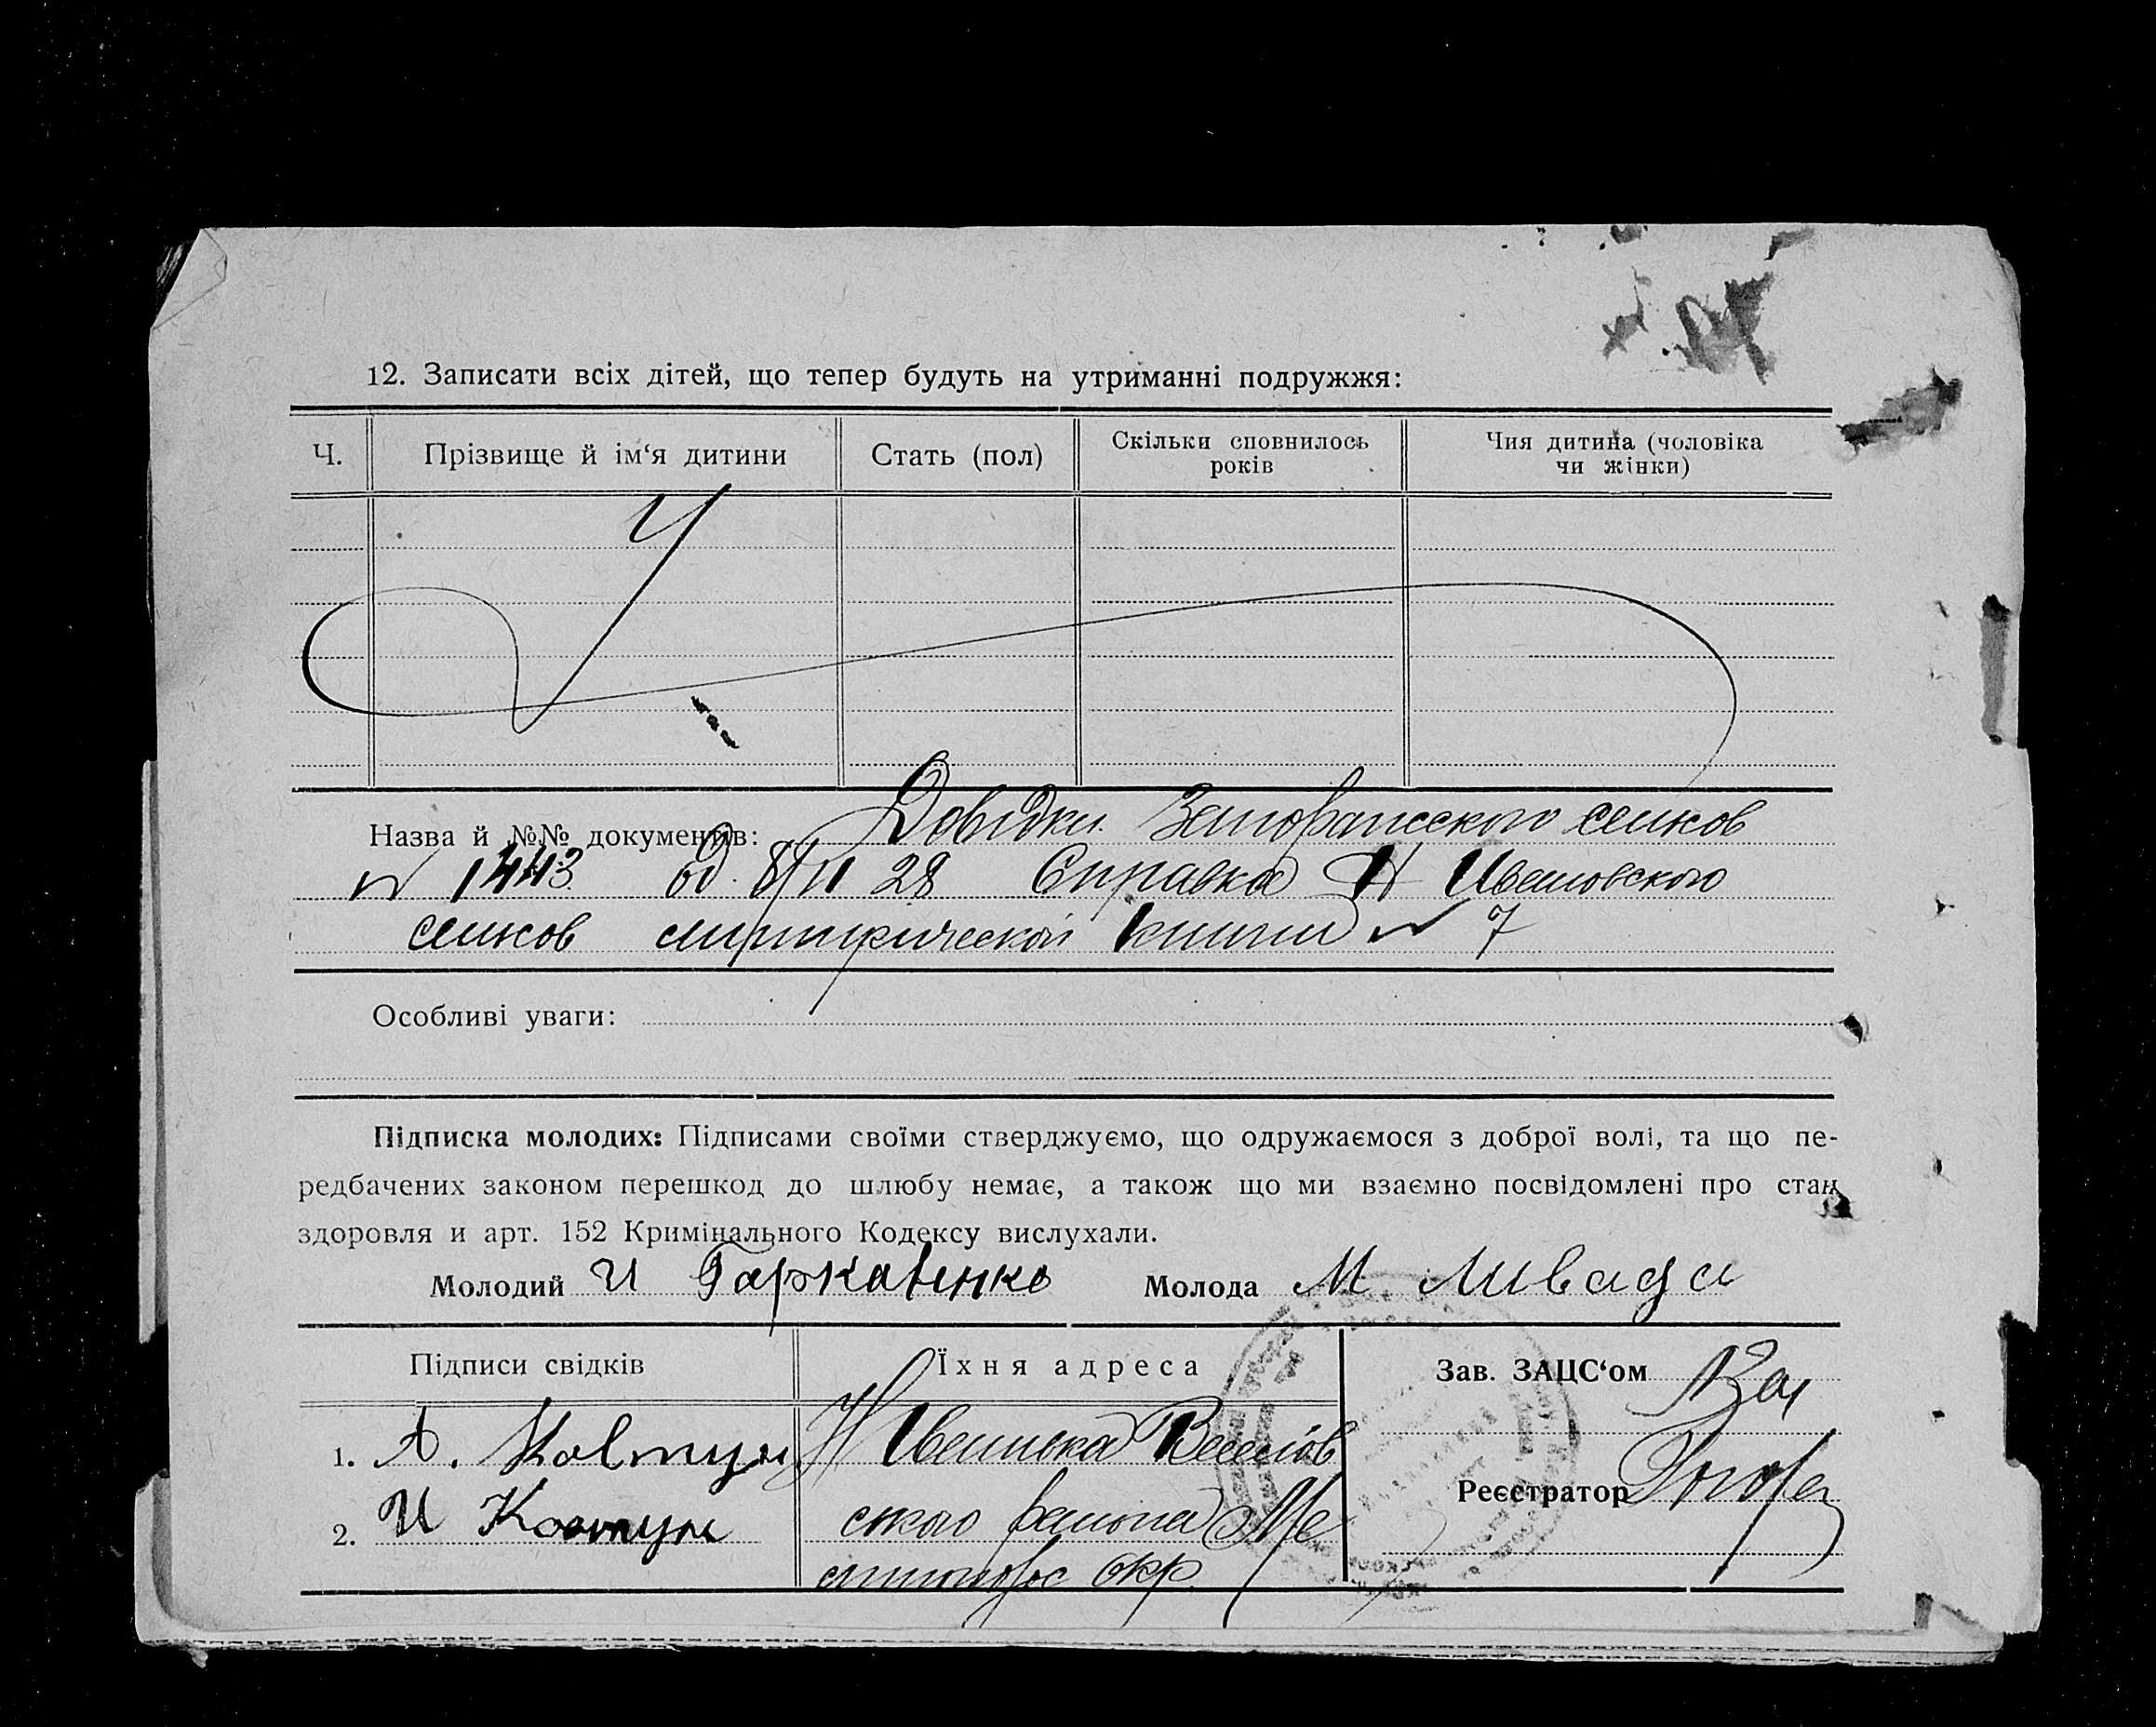 12. Записати всіх дітей, що тепер будуть на утриманні подружжя:
Ч. Прізвище й ім‘я дитини Стать (пол) Скільки сповнилось років Чия дитина (чоловіка чи жінки)
Назва й №№ документів: Довідки сельсов
№ 1443 од 8/II 28 Справка Н
сельсов книги № 7
Особливі уваги:
Підписка молодих: Підписами своїми стверджуємо, що одружаємося з доброї волі, та що пе-
редбачених законом перешкод до шлюбу немає, а також що ми взаємно посвідомлені про стан
здоровля и арт. 152 Кримінального Кодексу вислухали.
Молодий И Гаркавенко Молода М Ливада
Підписи свідків Їхня адреса Зав. ЗАЦС‘ом
1. А. Ковтун Н
Реєстратор
2. И Ковтун ского района Ме
окр.